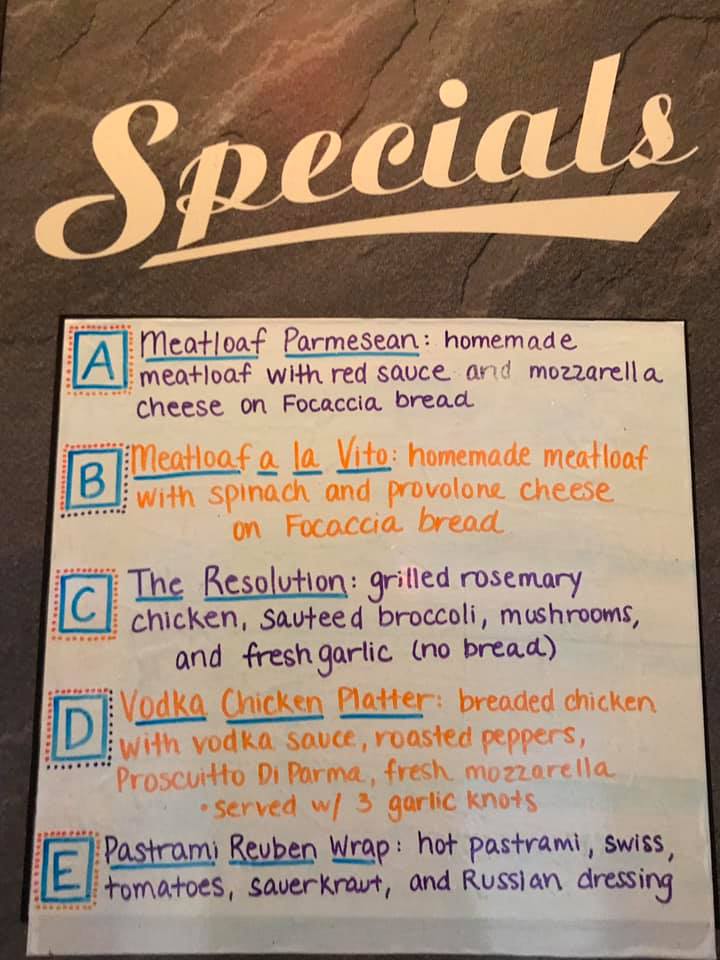 Specials
A Meatloaf Parmesean: homemade
meatloaf with red sauce and mozzarella
cheese on Focaccia bread
B Meatloaf a la Vito: homemade meatloaf
with spinach and provolone cheese
on Focaccia bread
C The Resolution: grilled rosemary
chicken, sauteed broccoli, mushrooms,
and fresh garlic (no bread)
D Vodka Chicken Platter: breaded chicken
with vodka sauce, roasted peppers,
Proscuitto Di Parma, fresh mozzarella
• served w/ 3 garlic knots
E Pastrami Reuben Wrap: hot pastrami, swiss,
tomatoes, sauerkraut, and Russian dressing